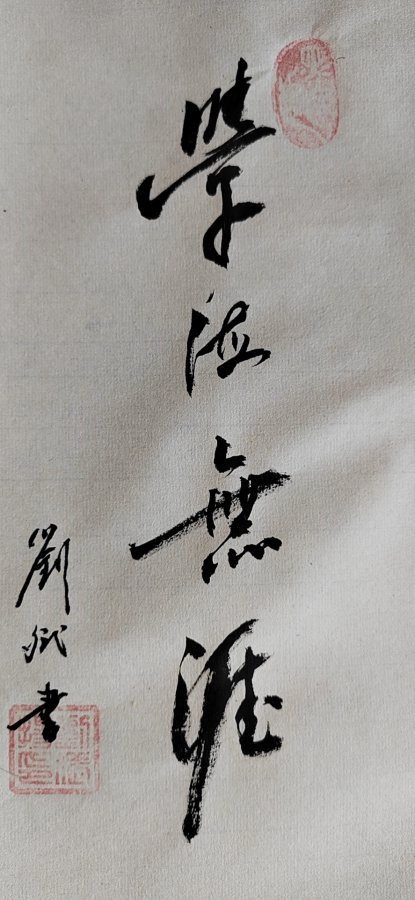 學海無涯
劉斌書